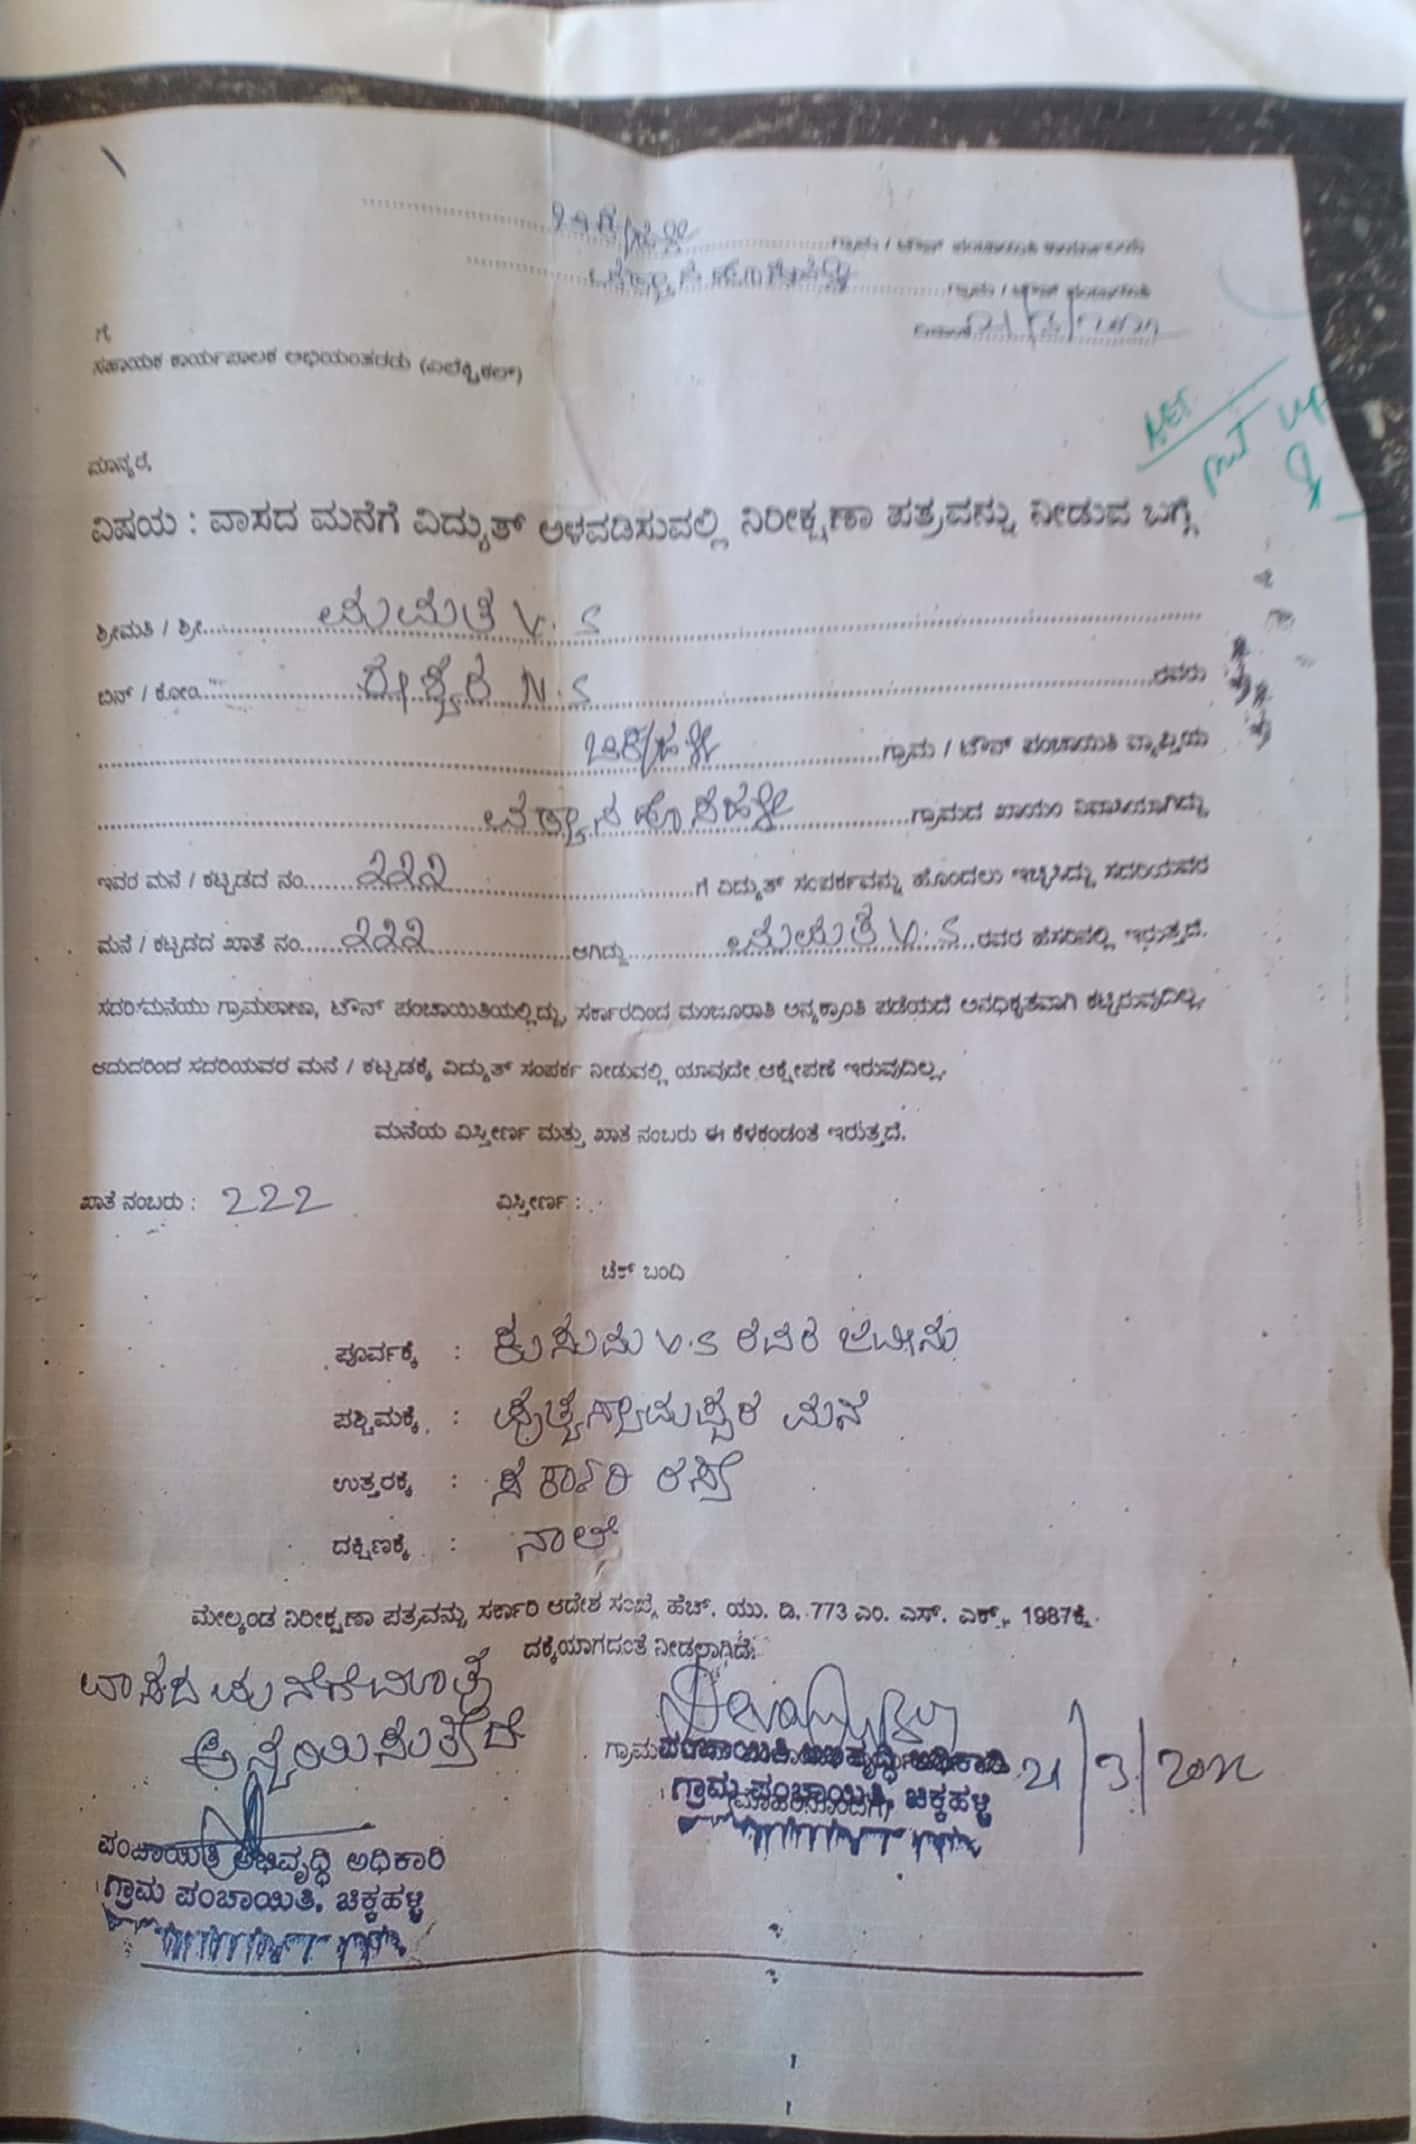 ಚಿಕ್ಕಹಳ್ಳಿ ಗ್ರಾಮ / ಟೌನ್ ಪಂಚಾಯಿತಿ ಕಾರ್ಯಾಲಯ
ಗ್ರಾಮ / ಟೌನ್ ಪಂಚಾಯಿತಿ
ದಿನಾಂಕ 21/3/2012
ಗೆ,
ಸಹಾಯಕ ಕಾರ್ಯಪಾಲಕ ಅಭಿಯಂತರರು (ಎಲೆಕ್ಟ್ರಿಕಲ್)
AET
put up
ಮಾನ್ಯರೆ,
ವಿಷಯ : ವಾಸದ ಮನೆಗೆ ವಿದ್ಯುತ್ ಅಳವಡಿಸುವಲ್ಲಿ ನಿರೀಕ್ಷಣಾ ಪತ್ರವನ್ನು ನೀಡುವ ಬಗ್ಗೆ
ಶ್ರೀಮತಿ / ಶ್ರೀ ಮಮತ V.S
ಬಿನ್ / ಕೋಂ N.S ರವರು
ಚಿಕ್ಕಹಳ್ಳಿ ಗ್ರಾಮ / ಟೌನ್ ಪಂಚಾಯಿತಿ ವ್ಯಾಪ್ತಿಯ
ಗ್ರಾಮದ ಖಾಯಂ ನಿವಾಸಿಯಾಗಿದ್ದು
ಇವರ ಮನೆ / ಕಟ್ಟಡದ ನಂ. ೨೨೨ ಗೆ ವಿದ್ಯುತ್ ಸಂಪರ್ಕವನ್ನು ಹೊಂದಲು ಇಚ್ಛಿಸಿದ್ದು ಸದರಿಯವರ
ಮನೆ / ಕಟ್ಟಡದ ಖಾತೆ ನಂ. ೨೨೨ ಆಗಿದ್ದು ಮಮತ V.S ರವರ ಹೆಸರಿನಲ್ಲಿ ಇರುತ್ತದೆ.
ಸದರಿ ಮನೆಯು ಗ್ರಾಮಠಾಣಾ, ಟೌನ್ ಪಂಚಾಯಿತಿಯಲ್ಲಿದ್ದು, ಸರ್ಕಾರದಿಂದ ಮಂಜೂರಾತಿ ಅನ್ಯಕ್ರಾಂತಿ ಪಡೆಯದೆ ಅನಧಿಕೃತವಾಗಿ ಕಟ್ಟಿರುವುದಿಲ್ಲ.
ಆದುದರಿಂದ ಸದರಿಯವರ ಮನೆ / ಕಟ್ಟಡಕ್ಕೆ ವಿದ್ಯುತ್ ಸಂಪರ್ಕ ನೀಡುವಲ್ಲಿ ಯಾವುದೇ ಆಕ್ಷೇಪಣೆ ಇರುವುದಿಲ್ಲ.
ಮನೆಯ ವಿಸ್ತೀರ್ಣ ಮತ್ತು ಖಾತೆ ನಂಬರು ಈ ಕೆಳಕಂಡಂತೆ ಇರುತ್ತದೆ.
ಖಾತೆ ನಂಬರು : 222 ವಿಸ್ತೀರ್ಣ :
ಚೆಕ್ ಬಂದಿ
ಪೂರ್ವಕ್ಕೆ : ಕುಸುಮ V.S ರವರ ಜಮೀನು
ಪಶ್ಚಿಮಕ್ಕೆ : ಮನೆ
ಉತ್ತರಕ್ಕೆ : ಸರ್ಕಾರಿ ರಸ್ತೆ
ದಕ್ಷಿಣಕ್ಕೆ : ನಾಲೆ
ಮೇಲ್ಕಂಡ ನಿರೀಕ್ಷಣಾ ಪತ್ರವನ್ನು ಸರ್ಕಾರಿ ಆದೇಶ ಸಂಖ್ಯೆ ಹೆಚ್. ಯು. ಡಿ. 773 ಎಂ. ಎಸ್. ಎಕ್ಸ್. 1987ಕ್ಕೆ
ದಕ್ಕೆಯಾಗದಂತೆ ನೀಡಲಾಗಿದೆ.
ವಾಸದ ಮನೆಗೆ ಮಾತ್ರ
ಅನ್ವಯಿಸುತ್ತದೆ
ಪಂಚಾಯಿತಿ ಅಭಿವೃದ್ಧಿ ಅಧಿಕಾರಿ 21/3/2012
ಗ್ರಾಮ ಪಂಚಾಯಿತಿ, ಚಿಕ್ಕಹಳ್ಳಿ
ಪಂಚಾಯಿತಿ ಅಭಿವೃದ್ಧಿ ಅಧಿಕಾರಿ
ಗ್ರಾಮ ಪಂಚಾಯಿತಿ, ಚಿಕ್ಕಹಳ್ಳಿ